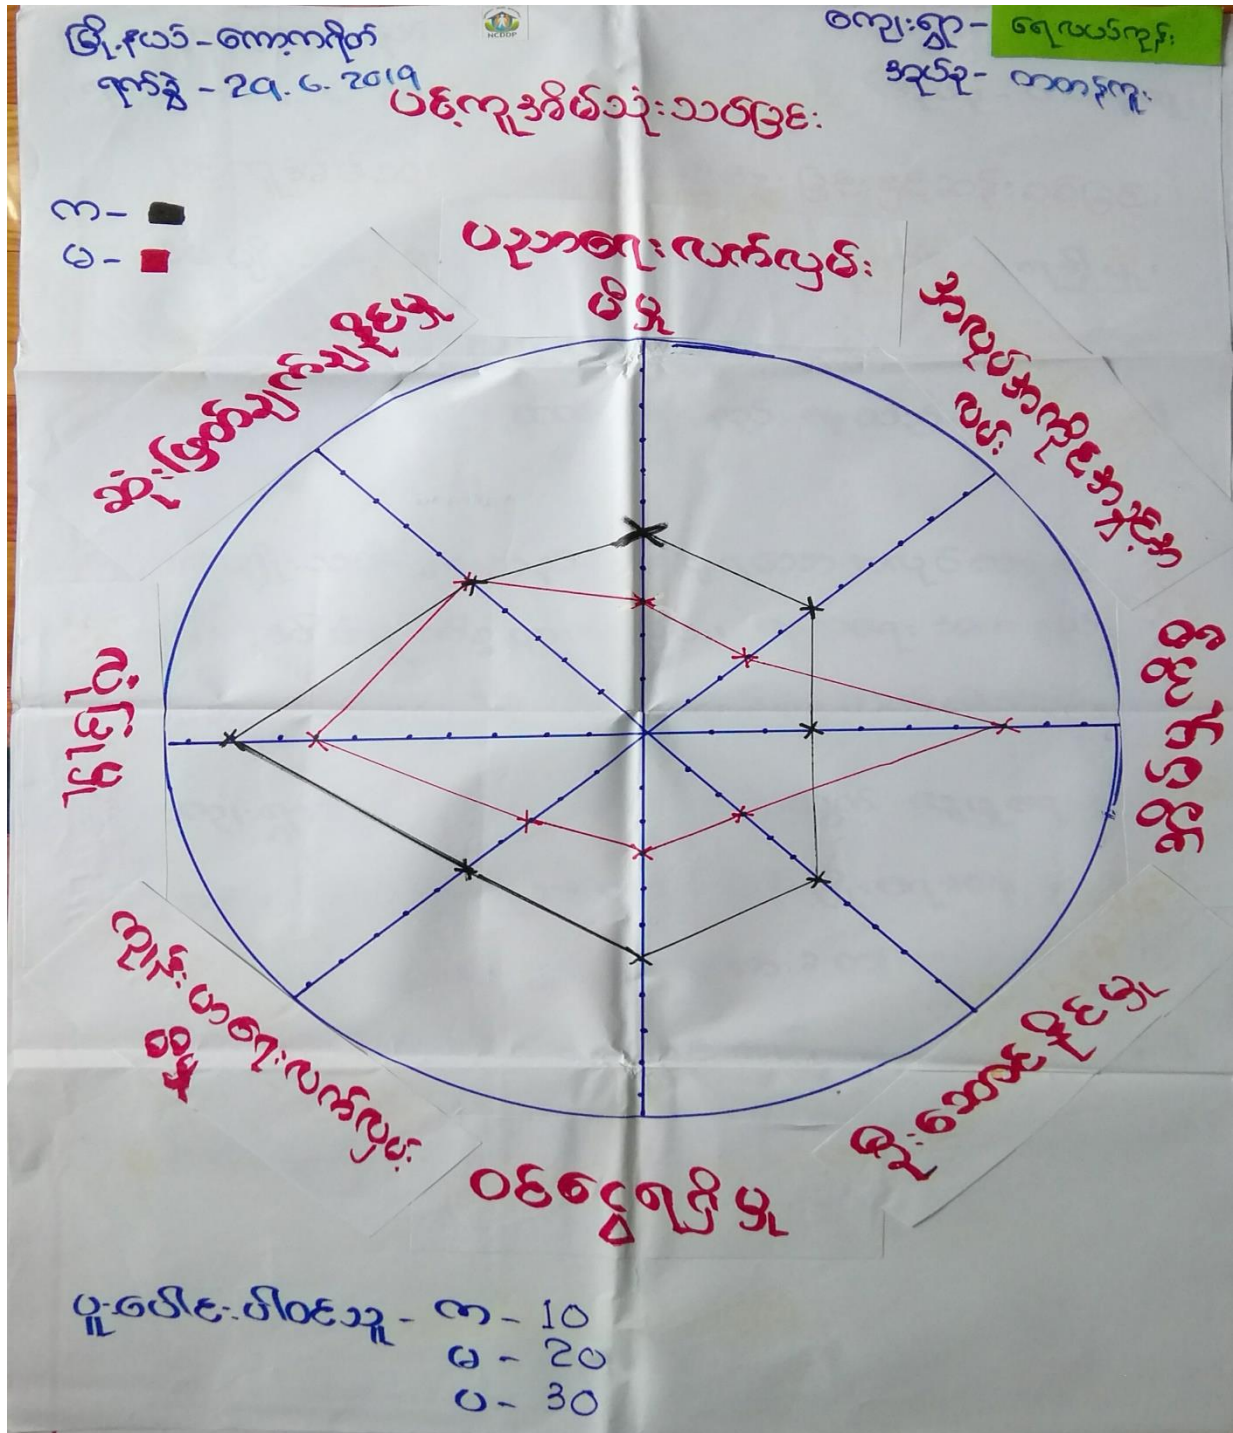 မြို့နယ် - ကော့ကရိတ်
ရက်စွဲ - 29.6.2019
NCDDP
ကျေးရွာ - ရေလယ်ကုန်း
အုပ်စု - တတန်ကူး
ပင့်ကူအိမ်သုံးသပ်ခြင်း
က -
မ -
ပညာရေးလက်လှမ်း
မီမှု
အလုပ်အကိုင်အခွင့်အ
လမ်း
စီးဆောင်နိုင်မှု
ဝင်ငွေရရှိမှု
ကျန်းမာရေးလက်လှမ်း
မီမှု
လူမှုရေး
ဆုံးဖြတ်ချက်ချနိုင်မှု
ပူးပေါင်းပါဝင်သူ - က - 10
မ - 20
ပ - 30